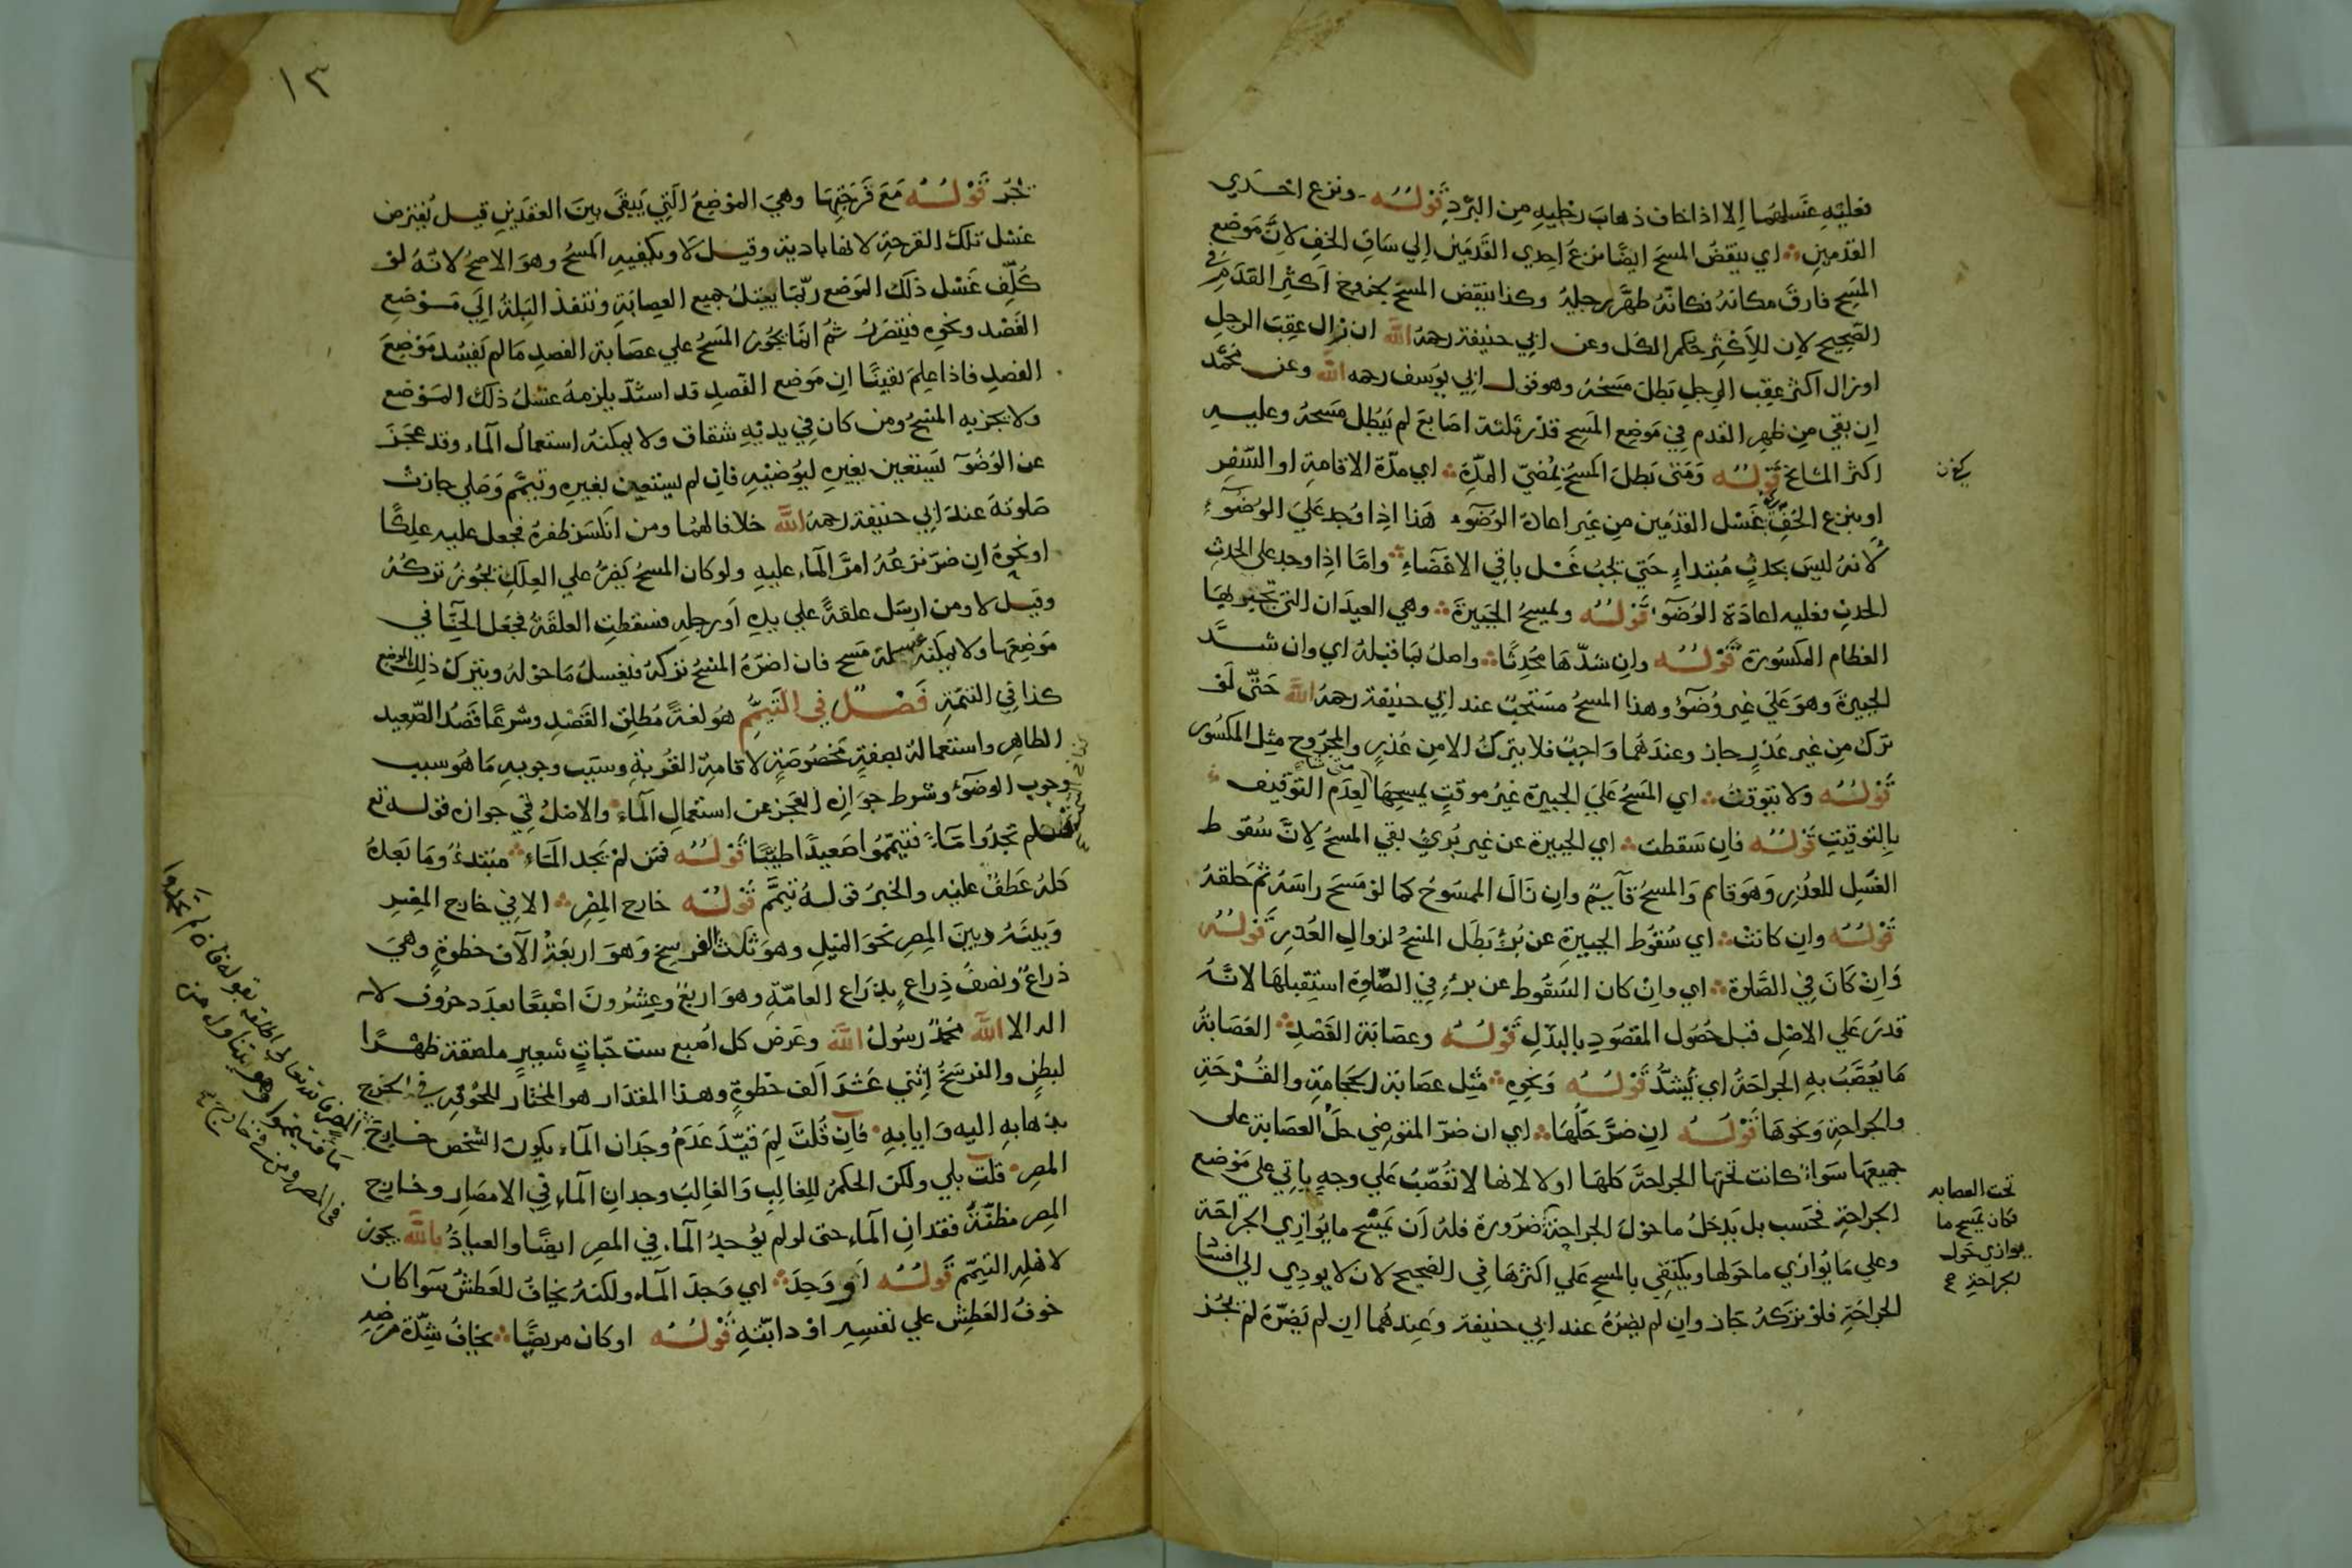 فعليه غسلهما الا اذا خاف ذهاب رجليه من البرد قوله ونزع احدي
القدمين اي ينقض المسح ايضا نزع احدي القدمين الي ساق الخف لان موضع
المسح فارق مكانه فكانه ظهر رجليه وكذا ينقض المسح بخروج اكثر القدم في
الصحيح لان للاكثر حكم الكل وعن ابي حنيفة رحمه الله ان زال عقب الرجل
او زال اكثر عقب الرجل بطل مسحه وهو قول ابي يوسف رحمه الله وعن محمد
ان بقي من ظهر القدم في موضع المسح قدر ثلثة اصابع لم يبطل مسحه وعليه
اكثر المشايخ قوله ومتي بطل المسح بمضي المدة اي مدة الاقامة او السفر
او بنزع الخف غسل القدمين من غير اعادة الوضوء هذا اذا وجد علي الوضوء
لانه ليس بحدث مبتداء حتي يجب غسل باقي الاعضاء واما اذا وجد علي الحدث
الحدث فعليه اعادة الوضوء قوله ويمسح الجبيرة وهي العيدان التي تجبر بها
العظام المكسورة قوله وان شدها محدثا واصل بما قبله اي وان شد
الجبيرة وهو علي غير وضوء وهذا المسح مستحب عند ابي حنيفة رحمه الله حتي لو
ترك من غير عذر جاز وعندهما واجب فلا يترك الا من عذر والمجروح مثل المكسور
قوله ولا يتوقت اي المسح علي الجبيرة غير موقت يمسحها لعدم التوقيف
بالتوقيت قوله فان سقطت اي الجبيرة عن غير برئ بقي المسح لان سقوط
الغسل للعذر وهو قايم والمسح قايم وان زال الممسوح كما لو مسح راسه ثم حلقه
قوله وان كانت اي سقوط الجبيرة عن برئ بطل المسح لزوال العذر قوله
وان كان في الصلوة اي وان كان السقوط عن برء في الصلوة استقبلها لانه
قدر علي الاصل قبل حصول المقصود بالبدل قوله وعصابة الفصد العصابة
ما يعصب به الجراحة اي يشد قوله ونحوه مثل عصابة الحجامة والقرحة
والجراحة ونحوها قوله ان ضر حلها اي ان ضر المتوضي حل العصابة علي
جميعها سواء كانت تحتها الجراحة كلها او لا لانها لا تعصب علي وجه ياتي علي موضع
الجراحة فحسب بل يدخل ما حول الجراحة ضرورة فله ان يمسح ما يوازي الجراحة
وعلي ما يوازي ما حولها ويكتفي بالمسح علي اكثرها في الصحيح لان لا يودي الي افساد
الجراحة فلو تركه جاز وان لم يضره عند ابي حنيفة وعندهما ان لم يضره لم يجز
تحت العصابه
فكان يمسح ما
يوازي حول
الجراحة
١٣
يجز قوله مع فرجتها وهي الموضع التي يبقي بين العقدين قيل يفترض
غسل تلك الفرجة لانها بادية وقيل لا ويكفيه المسح وهو الاصح لانه لو
كلف غسل ذلك الموضع ربما يبتل جميع العصابة وتنفذ البلة الي موضع
الفصد ونحوه فيتضرر ثم انما يجوز المسح علي عصابة الفصد ما لم يفسد موضع
الفصد فاذا علم يقينا ان موضع الفصد قد استد يلزمه غسل ذلك الموضع
ولا يجزيه المسح ومن كان في يديه شقاق ولا يمكنه استعمال الماء وقد عجز
عن الوضوء يستعين بغيره ليوضئه فان لم يستعين بغيره وتيمم وصلي جازت
صلوته عند ابي حنيفة رحمه الله خلافا لهما ومن انكسر ظفره فجعل عليه علكا
او نحوه ان ضر نزعه امر الماء عليه ولو كان المسح يضر علي العلك يجوز تركه
وقيل لا ومن ارسل علقة علي يده او رجله فسقطت العلقة فجعل الحنا في
موضعها ولا يمكنه غسله مسح فان اضره المسح تركه فيغسل ما حوله ويترك ذلك الموضع
كذا في التتمة فصل في التيمم هو لغة مطلق القصد وشرعا قصد الصعيد
الطاهر واستعماله بصفة مخصوصة لاقامة القربة وسبب وجوبه ما هو سبب
وجوب الوضوء وشرط جوازه العجز عن استعمال الماء والاصل في جوازه قوله تع
فلم تجدوا ماء فتيمموا صعيدا طيبا قوله فمن لم يجد الماء مبتدء وما بعده
كله عطف عليه والخبر قوله تيمم قوله خارج المصر الا في خارج المصر
وبينه وبين المصر نحو الميل وهو ثلث الفرسخ وهو اربعة الاف خطوة وهي
ذراع ونصف ذراع بذراع العامة وهو اربع وعشرون اصبعا بعدد حروف لا
اله الا الله محمد رسول الله وعرض كل اصبع ست حبات شعير ملصقة ظهرا
لبطن والفرسخ اثني عشر الف خطوة وهذا المقدار هو المختار للحوق الحرج
بذهابه اليه وايابه فان قلت لم قيد عدم وجدان الماء بكون الشخص خارج
المصر قلت بلي ولكن الحكم للغالب والغالب وجدان الماء في الامصار وخارج
المصر مظنة فقدان الماء حتي لو لم يوجد الماء في المصر ايضا والعياذ بالله يجوز
لاهله التيمم قوله او وجد اي وجد الماء ولكنه يخاف للعطش سوا كان
خوف العطش علي نفسه او دابته قوله او كان مريضا يخاف شدة مرضه